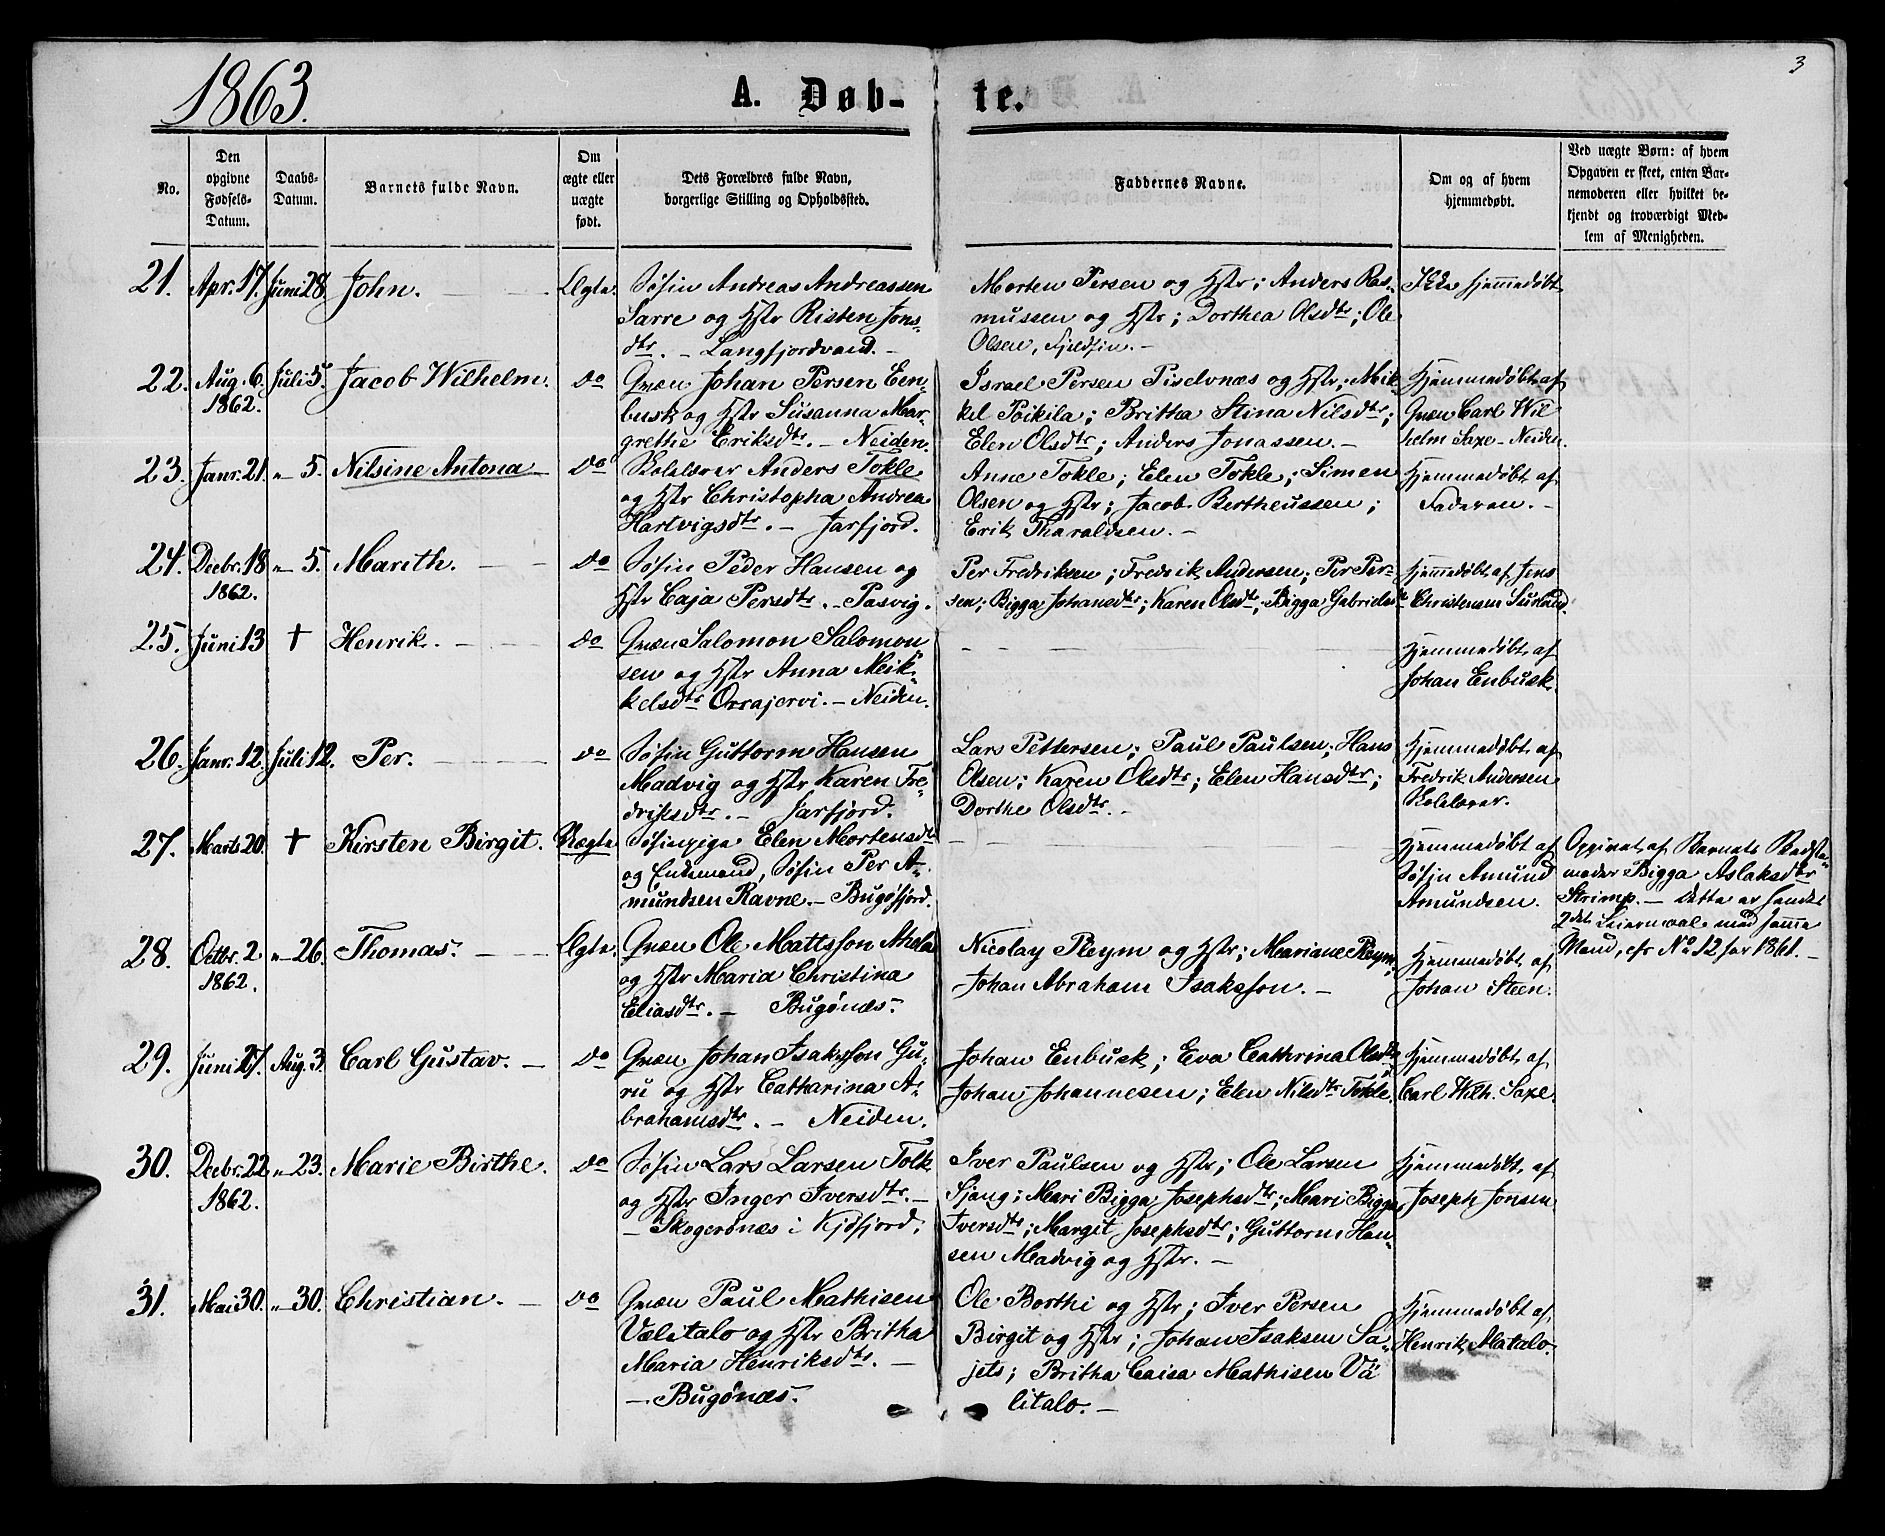 1863.
A. Døb-
te.
3
No.
Den
opgivne
Fødsels-
Datum.
Daabs-
Datum.
Barnets fulde Navn.
Om
ægte eller
uægte
født.
Dets Forældres fulde Navn,
borgerlige Stilling og Opholdssted.
Faddernes Navne.
Om og af hvem
hjemmedøbt.
Ved uægte Børn: af hvem
Opgaven er skeet, enten Bar-
nemoderen eller hvilket be-
kjendt og troværdigt Med-
lem af Menigheden.
21. Apr. 17. Juni 28. John. Ægte.
Søfin Andreas Andreassen
Sarre og Hstr Risten Jons-
dtr. - Langfjordvand. -
Morten Persen og Hstr; Anders Ras-
mussen og Hstr; Dorthea Olsdtr; Ole
Olsen, Fjeldfin. -
Ikke hjemmedøbt
22. Aug. 6. Juli 5. Jacob Wilhelm. do
1862.
Qvæn Johan Persen Een-
busk og Hstr Susanna Mar-
grethe Eriksdtr. - Neiden.
Israel Persen Piselvnæs og Hstr; Mik-
kel Poikila; Britha Stina Nilsdtr;
Elen Olsdtr; Anders Jonassen. -
Hjemmedøbt af
Qvæn Carl Wil
helm Saxe - Neiden.
23. Janr. 21. " 5. Nilsine Antona do
Anders Tokle
og Hstr Christopha Andrea
Hartvigsdtr. - Jarfjord.
Anne Tokle; Elen Tokle; Simen
Olsen og Hstr; Jacob Bertheussen;
Erik Tharaldsen. -
Hjemmedøbt af
Faderen. -
24. Decbr. 18 " 5. Marith. do
1862.
Søfin Peder Hansen og
Hstr Caja Persdtr. - Pasvig.
Per Fredriksen; Fredrik Andersen; Per Per-
sen; Bigga Johansdtr; Karen Olsdtr; Bigga Gabrielsdtr
Hjemmedøbt af Jens
Christensen
25. Juni 13 † Henrik. do
Qvæn Salomon Salomon-
sen og Hstr Anna Mik-
kelsdtr Orrajervi. - Neiden.
Hjemmedøbt af
Johan Enbusk.
26. Janr. 12. Juli 12. Per. do
Søfin Guttorm Hansen
Madvig og Hstr Karen Fre-
driksdtr. - Jarfjord.
Lars Pettersen; Paul Paulsen; Hans
Olsen; Karen Olsdtr; Elen Hansdtr;
Dorthe Olsdtr. -
Hjemmedøbt af
Fredrik Andersen
27. Marts 20. † Kirsten Birgit. Uægte
Søfinpige Elen Mortensdtr
og Enkemand, Søfin Per A-
mundsen Ravne. - Bugøfjord.
Hjemmedøbt af
Søfin Amund
Amundsen.
Opgivet af Barnets Bedste-
moder Bigga Aslaksdtr
Strimp. - Dette er hendes
2det Leiermaal med samme
Mand, cfr No 12 for 1861. -
28. Octbr. 2 " 26. Thomas. Ægte.
1862.
Qvæn Ole Mattsson
og Hstr Maria Christina
Eliasdtr. - Bugønæs. -
Nicolay Pleym og Hstr; Mariane Pleym,
Johan Abraham Isaksson. -
Hjemmedøbt af
Johan Steen.
29. Juni 27. Aug. 3. Carl Gustav. do
Qvæn Johan Isaksson Gu-
ru og Hstr Catharina A-
brahamsdtr. - Neiden.
Johan Enbusk; Eva Cathrina Olsdtr;
Johan Johannesen; Elen Nilsdtr Tokle.
Hjemmedøbt af
Carl Wilh. Saxe.
30. Decbr. 22. " 23. Marie Birthe. do
1862.
Søfin Lars Larsen Tolk
og Hstr Inger Iversdtr. -
- Skogerønæs i Kjøfjord.
Iver Paulsen og Hstr; Ole Larsen
Sjang; Mari Bigga Josephsdtr; Mari Bigga
Iversdtr; Margit Josephsdtr; Guttorm Han-
sen Madvig og Hstr. -
Hjemmedøbt af
Joseph Jonsen
31. Mai 30. " 30. Christian. do
Qvæn Paul Mathisen
Välitalo og Hstr Britha
Maria Henriksdtr. -
- Bugønæs. -
Ole Borthi og Hstr; Iver Persen
Birgit og Hstr; Johan Isaksen Sa-
jets; Britha Caisa Mathisen Vä
litalo. -
Hjemmedøbt af
Henrik Matalo.